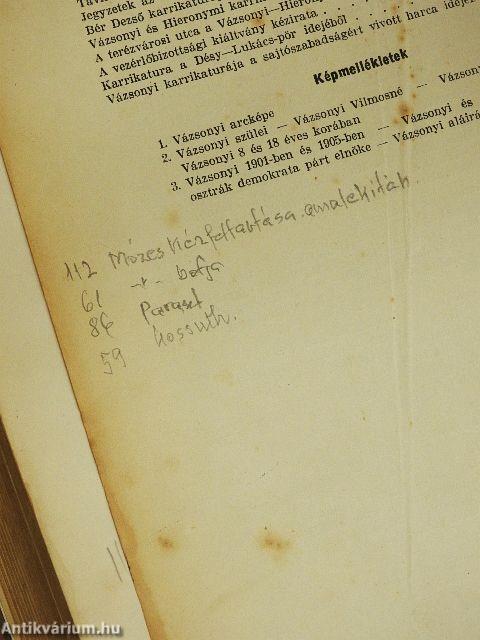 Jegyzetek az
Bér Dezső karrikatur
Vázsonyi és Hieronymi karri
A terézvárosi utca a Vázsonyi—Hieron
A vezérlőbizottsági kiáltvány kézirata . . . .
Karrikatura a Désy—Lukács-pör idejéből . . . . . .
Vázsonyi karrikaturája a sajtószabadságért vivott harca idejéb
Képmellékletek
1. Vázsonyi arcképe
2. Vázsonyi szülei — Vázsonyi Vilmosné — Vázsony
Vázsonyi 8 és 18 éves korában
3. Vázsonyi 1901-ben és 1905-ben — Vázsonyi és
osztrák demokrata párt elnöke — Vázsonyi aláírá
112 Mózes kézfeltartása. amalekiták.
61 botja
86 Paraszt
59 Kossuth.
Antikvárium.hu